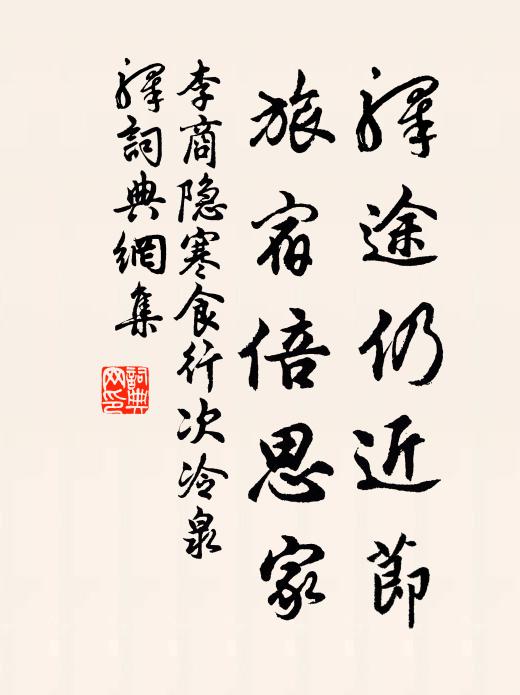 驛途仍近節
旅宿倍思家
李商隐寒食行次冷泉
驛詞典網集
詞典
网印